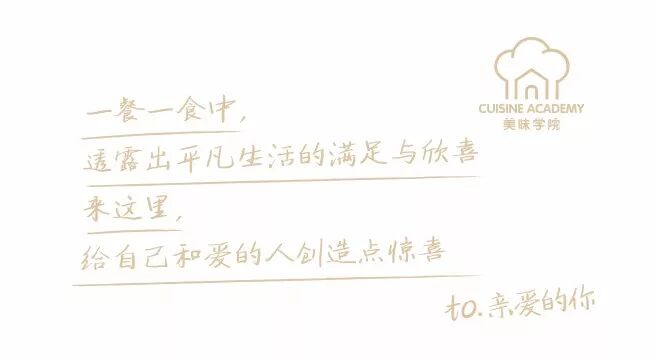 CUISINE ACADEMY
美味学院
一餐一食中，
透露出平凡生活的满足与欣喜
来这里，
给自己和爱的人创造点惊喜
to.亲爱的你